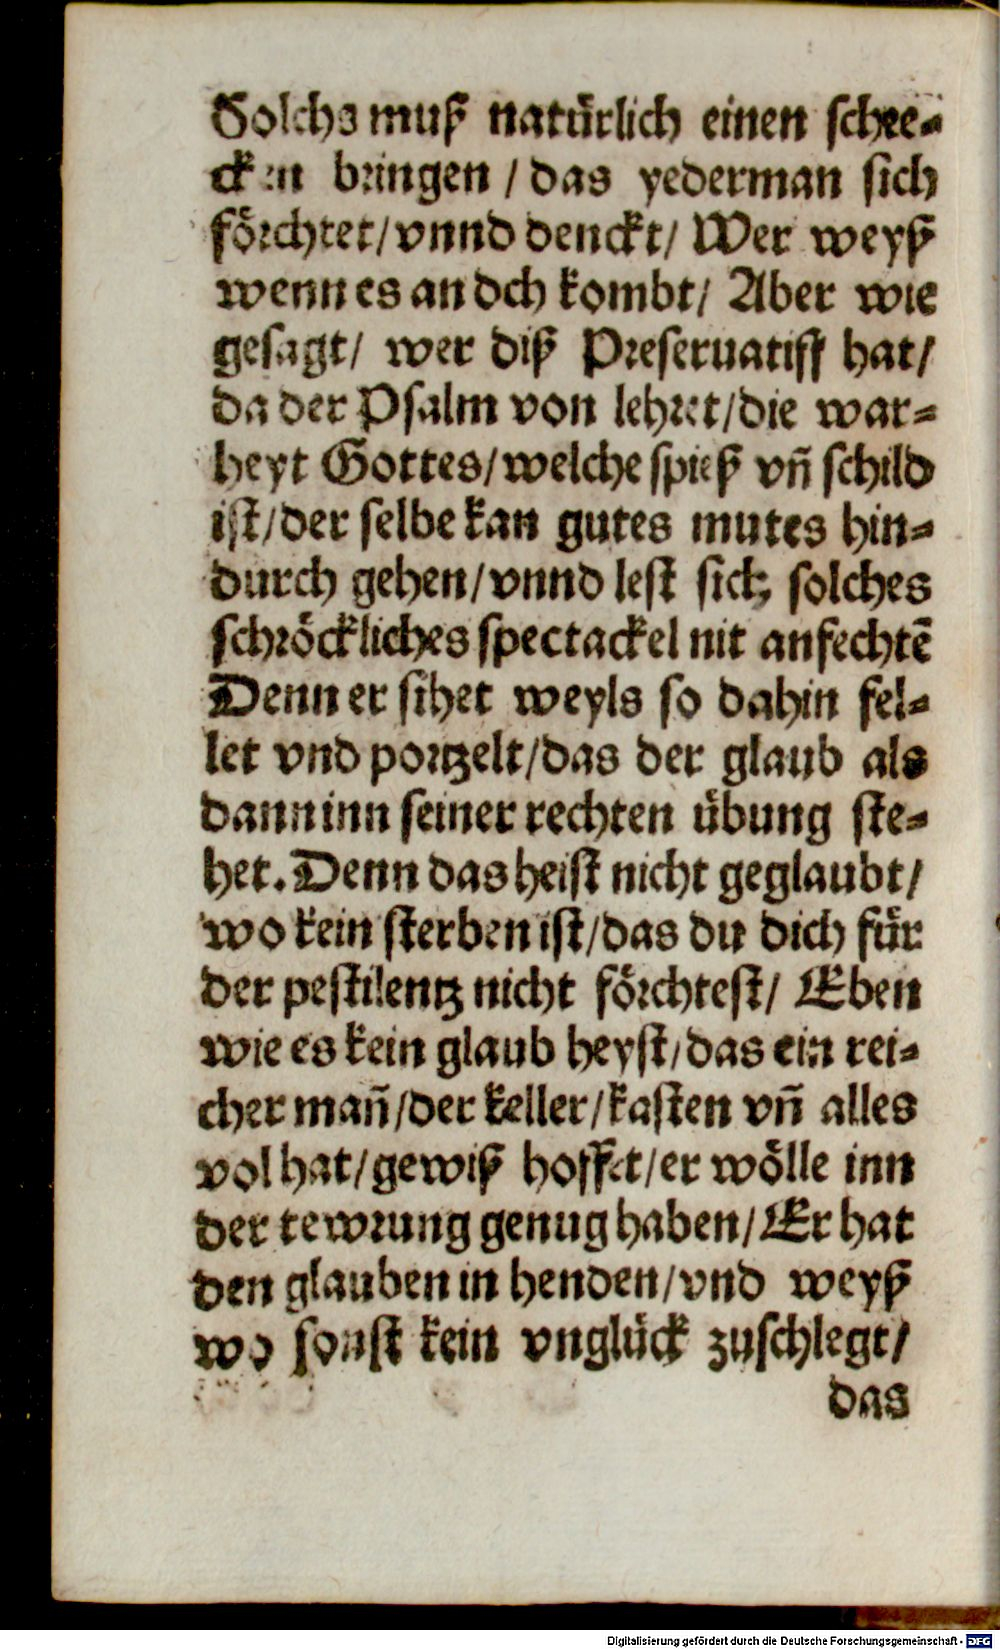 Solchs muß natürlich einen schre⸗
cken bringen / das yederman sich
förchtet/ vnnd denckt/ Wer weyß
wenn es an dch kombt/ Aber wie
gesagt/ wer diß Preseruatiff hat/
da der Psalm von lehret/die war⸗
heyt Gottes/welche spieß vñ schild
ist/der selbe kan gutes mutes hin⸗
durch gehen/vnnd lest sich solches
schröckliches spectackel nit anfechtẽ
Denn er sihet weyls so dahin fel⸗
let vnd portzelt/das der glaub als
dann inn seiner rechten übung ste⸗
het. Denn das heist nicht geglaubt/
wo kein sterben ist/das du dich für
der pestilentz nicht förchtest/ Eben
wie es kein glaub heyst/das ein rei⸗
cher mañ/der keller/kasten vñ alles
vol hat/gewiß hoffet/er wölle inn
der tewrung genug haben/Er hat
den glauben in henden/vnd weyß
wo sonst kein vnglück zuschlegt/
das
Digitalisierung gefördert durch die Deutsche Forschungsgemeinschaft - DFG